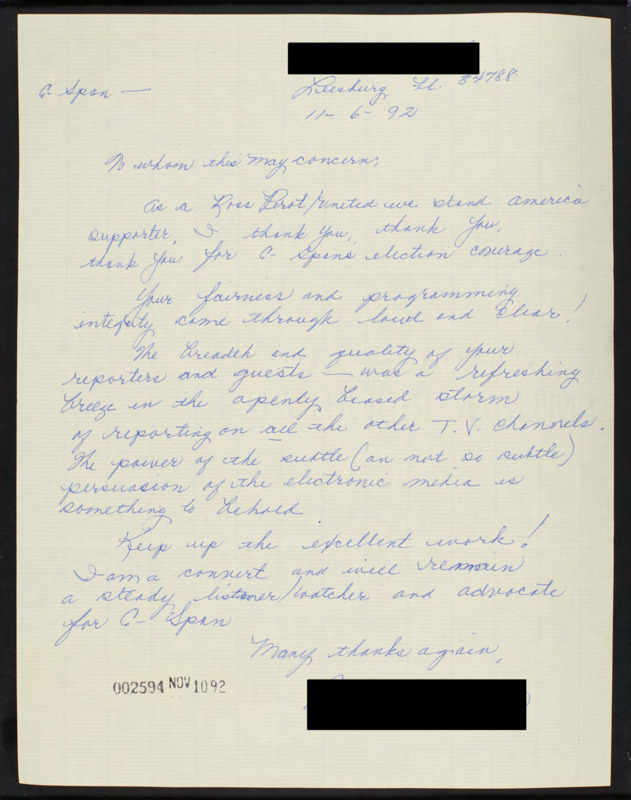 Leesburg, Fl. 34788
C-Span —
11-6-92
To whom this May concern;
As a Ross Perot/United we stand america
supporter, I thank you, thank you,
thank you for C-Spans election coverage.
Your fairness and programming
integrity come through loud and clear!
The breadth and quality of your
reporters and guests — was a refreshing
breeze in the openly biased storm
of reporting on all the other T.V. channels.
The power of the subtle (an not so subtle)
persuasion of the electronic media is
something to behold
Keep up the excellent work!
I am a convert and will remain
a steady listener/watcher and advocate
for C-Span
Many thanks again,
002594 NOV 10 92